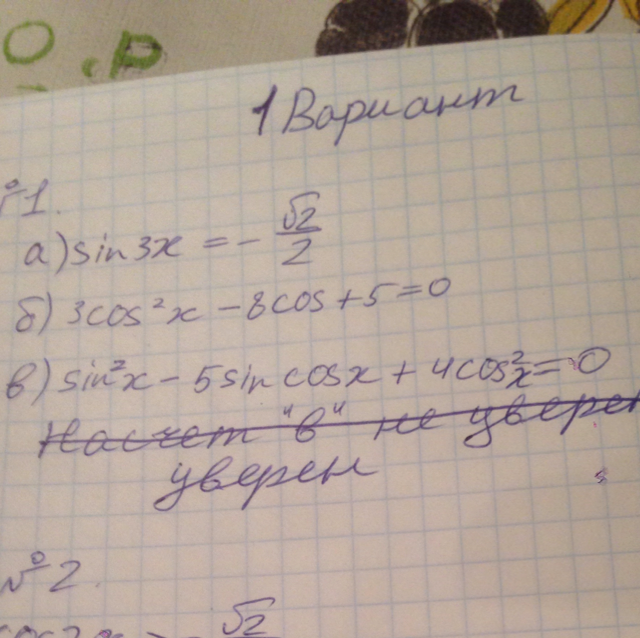 О.Р
1 Вариант
№1.
а) sin 3x = - √2/2
б) 3cos²x - 8cos + 5 = 0
в) sin²x - 5 sin cosx + 4cos²x = 0
Насчет "в" не уверен
уверен
№2.
√2